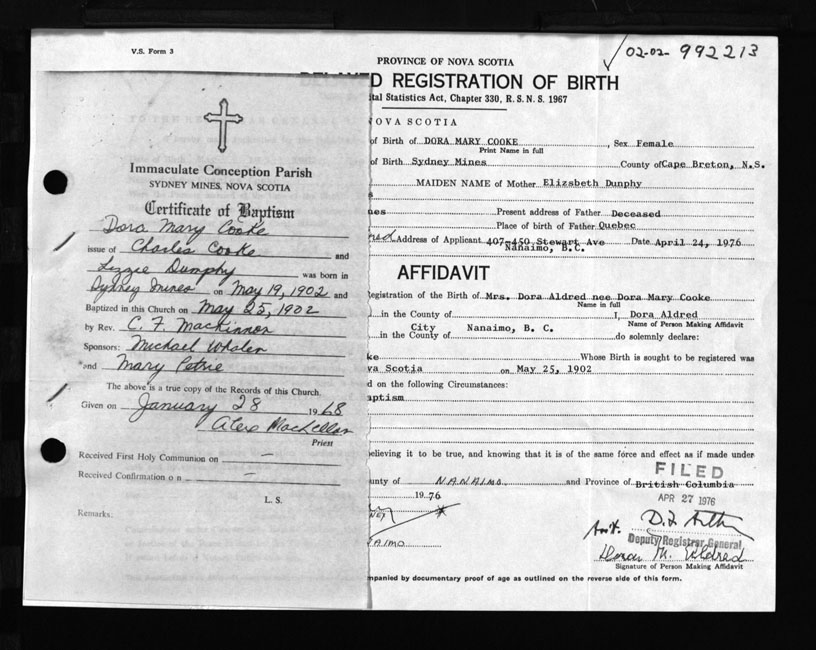 V.S. Form 3
02-02- 992213
PROVINCE OF NOVA SCOTIA
DELAYED REGISTRATION OF BIRTH
tal Statistics Act, Chapter 330, R.S.N.S. 1967
NOVA SCOTIA
of Birth of DORA MARY COOKE, Sex Female
Print Name in full
of Birth Sydney Mines County of Cape Breton, N.S.
MAIDEN NAME of Mother Elizsbeth Dunphy
s
nes Present address of Father Deceased
Place of birth of Father Quebec
Address of Applicant 407-450 Stewart Ave Date April 24, 1976
Nanaimo, B.C.
AFFIDAVIT
Registration of the Birth of Mrs. Dora Aldred nee Dora Mary Cooke
Name in full
in the County of I, Dora Aldred
Name of Person Making Affidavit
City Nanaimo, B. C.
in the County of do solemnly declare:
ke Whose Birth is sought to be registered was
va Scotia on May 25, 1902
d on the following Circumstances:
aptism
elieving it to be true, and knowing that it is of the same force and effect as if made under
unty of NANAIMO and Province of British Columbia
FILED
APR 27 1976
1976
AIMO
Deputy Registrar General
Signature of Person Making Affidavit
mpanied by documentary proof of age as outlined on the reverse side of this form.
Immaculate Conception Parish
SYDNEY MINES, NOVA SCOTIA
Certificate of Baptism
Dora Mary Cooke
issue of Charles Cooke and
Lizzie Dunphy was born in
Sydney Mines on May 19, 1902 and
Baptized in this Church on May 25, 1902
by Rev. C. F. MacKinnon
Sponsors: Michael Whalen
and Mary Petrie
The above is a true copy of the Records of this Church.
Given on January 28 1968
Alex MacLellan
Priest
Received First Holy Communion on —
Received Confirmation on —
L. S.
Remarks: